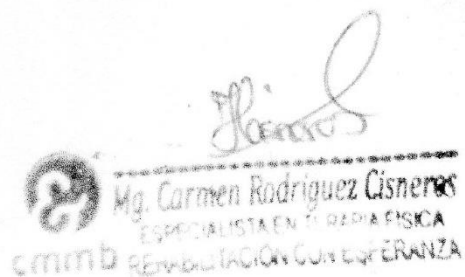 Mg. Carmen Rodriguez Cisneros
ESPECIALISTA EN TERAPIA FISICA
cmmb REHABILITACIÓN CON ESPERANZA